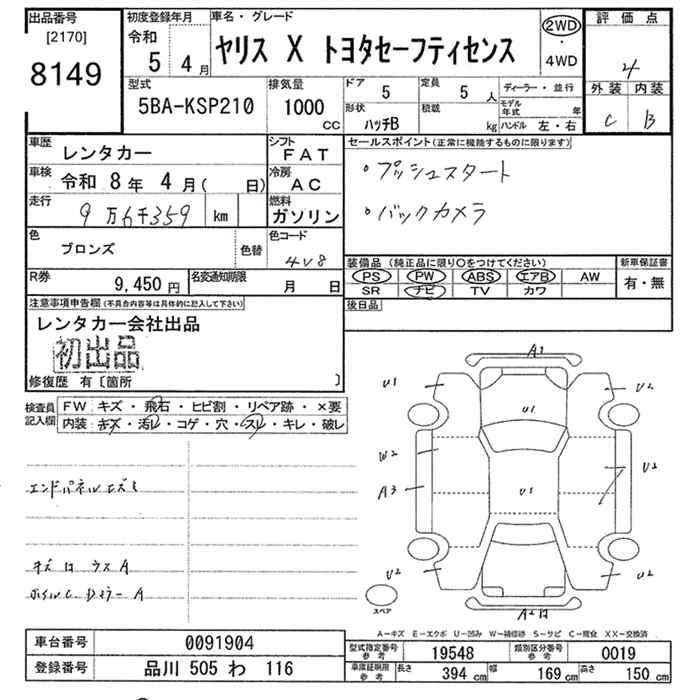 出品番号
[2170]
8149
初度登録年月
令和
5 4 月
車名・グレード
ヤリス X トヨタセーフティセンス
2WD
・
4WD
評価点
4
外装 内装
C B
型式
5BA-KSP210
排気量
1000
CC
ドア 5
定員 5 人
形状
ハッチB
積載
kg
ディーラー・並行
モデル年式 年
ハンドル 左・右
車歴 レンタカー
車検 令和 8年 4月( 日)
走行 9万6千359 km
シフト
FAT
冷房
AC
燃料
ガソリン
セールスポイント(正常に機能するものに限ります)
・プッシュスタート
・バックカメラ
色 ブロンズ 色替
色コード
4V8
R券 9,450 円
名変通知期限
月 日
装備品(純正品に限り○をつけてください)
PS PW ABS エアB AW
SR ナビ TV カワ
新車保証書
有・無
後日品
注意事項申告欄(不具合内容等は具体的に記入して下さい)
レンタカー会社出品
初出品
修復歴 有〔箇所 〕
検査員記入欄
FW キズ・飛石・ヒビ割・リペア跡・×要
内装 キズ・汚レ・コゲ・穴・スレ・キレ・破レ
エンドパネルエズミ
キズ ロ ラス A
ホイルC Dミラー A
A1
U1
U2
U1
W2
A3
U2
U1
U2
U2
スペア
A2
A-キズ E-エクボ U-凹み W-補修跡 S-サビ C-腐食 XX-交換済
車台番号 0091904
登録番号 品川 505 わ 116
型式指定番号 参考 19548
類別区分番号 参考 0019
車庫証明用 参考 長さ 394 cm 幅 169 cm 高さ 150 cm